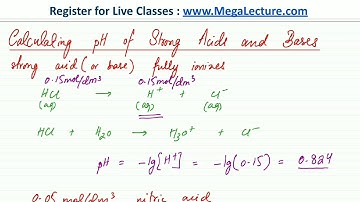 Register for Live Classes : www.MegaLecture.com
Calculating pH of Strong Acids and Bases
strong acid (or base) fully ionizes
0.15mol/dm³ 0.15mol/dm³
HCl → H⁺ + Cl⁻
(aq) (aq) (aq)
HCl + H₂O → H₃O⁺ + Cl⁻
pH = -lg[H⁺] = -lg(0.15) = 0.824
0.05 mol/dm³ nitric acid